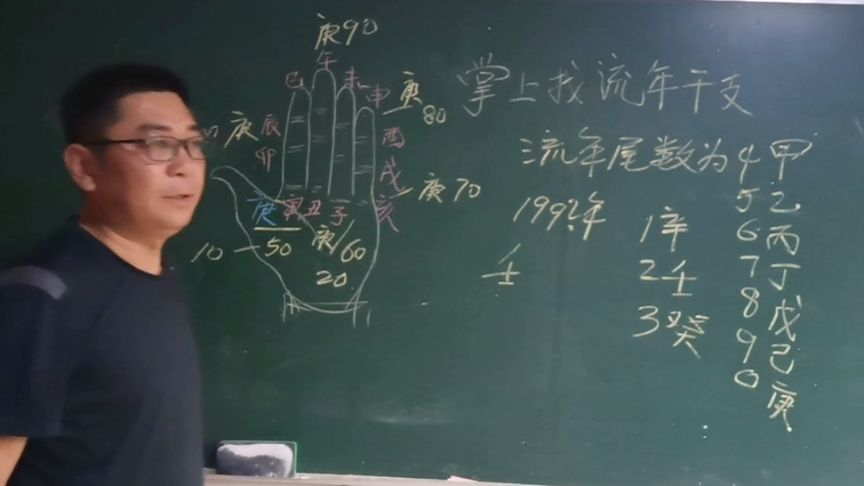 庚90
午
巳 未 申 庚80
掌上找流年干支
庚 辰 酉
卯 戌
庚70
庚 寅 丑 子 亥
10 — 50 庚/60
20
流年尾数为4甲
5乙
6丙
7丁
8戊
9己
0庚
1992年
壬
1辛
2壬
3癸